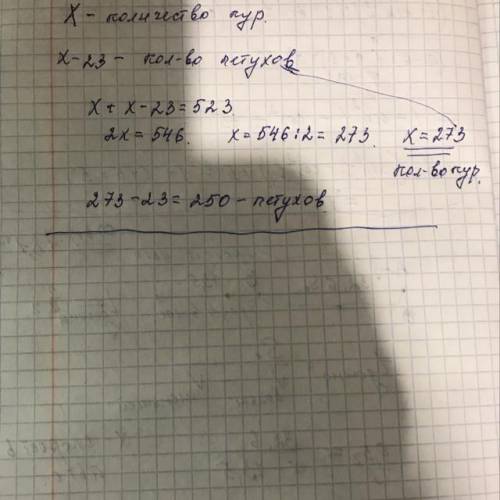 X - количество кур.
x-23 - кол-во петухов
x + x - 23 = 523
2x = 546. x = 546 : 2 = 273. x = 273
кол-во кур.
273 - 23 = 250 - петухов